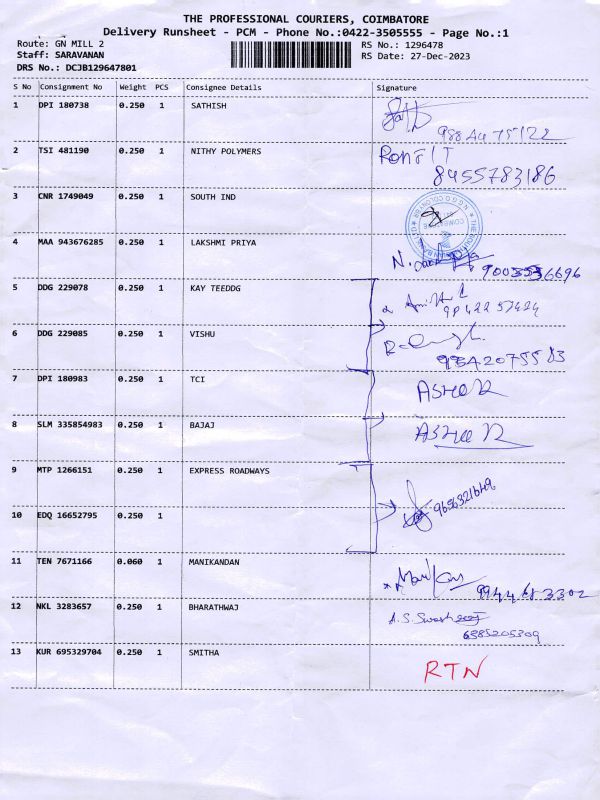 THE PROFESSIONAL COURIERS, COIMBATORE
Delivery Runsheet - PCM - Phone No.:0422-3505555 - Page No.:1
Route: GN MILL 2 RS No.: 1296478
Staff: SARAVANAN RS Date: 27-Dec-2023
DRS No.: DCJB129647801
S No Consignment No Weight PCS Consignee Details Signature
1 DPI 180738 0.250 1 SATHISH
2 TSI 481190 0.250 1 NITHY POLYMERS
8455783186
3 CNR 1749049 0.250 1 SOUTH IND
4 MAA 943676285 0.250 1 LAKSHMI PRIYA
5 DDG 229078 0.250 1 KAY TEEDDG
6 DDG 229085 0.250 1 VISHU
7 DPI 180983 0.250 1 TCI
8 SLM 335854983 0.250 1 BAJAJ
9 MTP 1266151 0.250 1 EXPRESS ROADWAYS
10 EDQ 16652795 0.250 1
11 TEN 7671166 0.060 1 MANIKANDAN
12 NKL 3283657 0.250 1 BHARATHWAJ
6385205309
13 KUR 695329704 0.250 1 SMITHA RTN